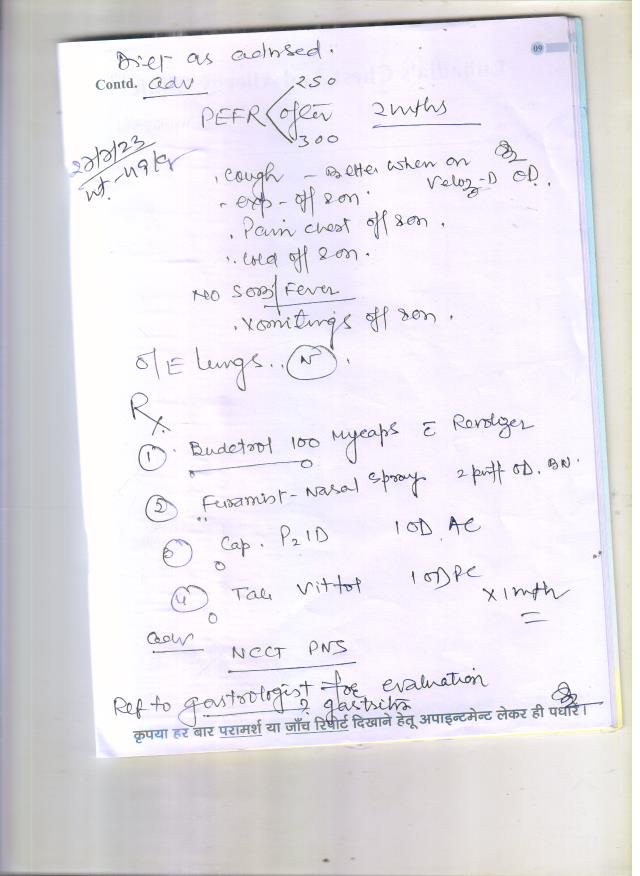 Diet as advised.
09
Contd. adv
250
PEFR after 2 mths
300
wt. - 49 kg
. Cough - Better when on
Veloz-D OD.
- exp - off & on.
. Pain chest off & on.
.. Cold off & on.
No SOB/Fever
. Vomitings off & on.
O/E Lungs.. N.
Rx
1 Budetrol 100 Mycaps c Revolizer
2 Furamist - Nasal Spray 2 puff OD. BN.
3 Cap. 1 OD AC
4 Tab 1 OD PC
x 1 mth
adv NCCT PNS
Ref to gastrologist for evaluation
? gastritis
कृपया हर बार परामर्श या जाँच रिपोर्ट दिखाने हेतू अपाइन्टमेन्ट लेकर ही पधारें।